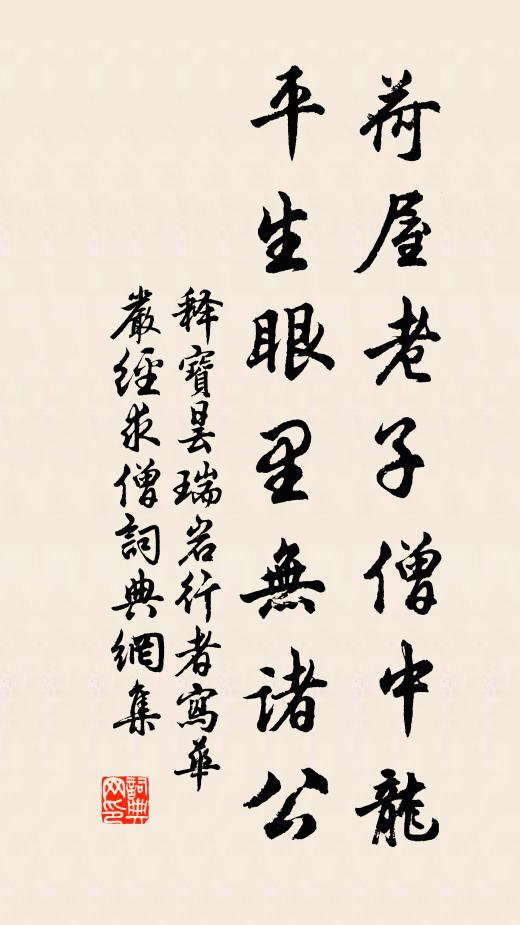 荷屋老子僧中龍
平生眼里無諸公
释寶曇瑞岩行者寫華
嚴經求僧詞典網集
詞典网印